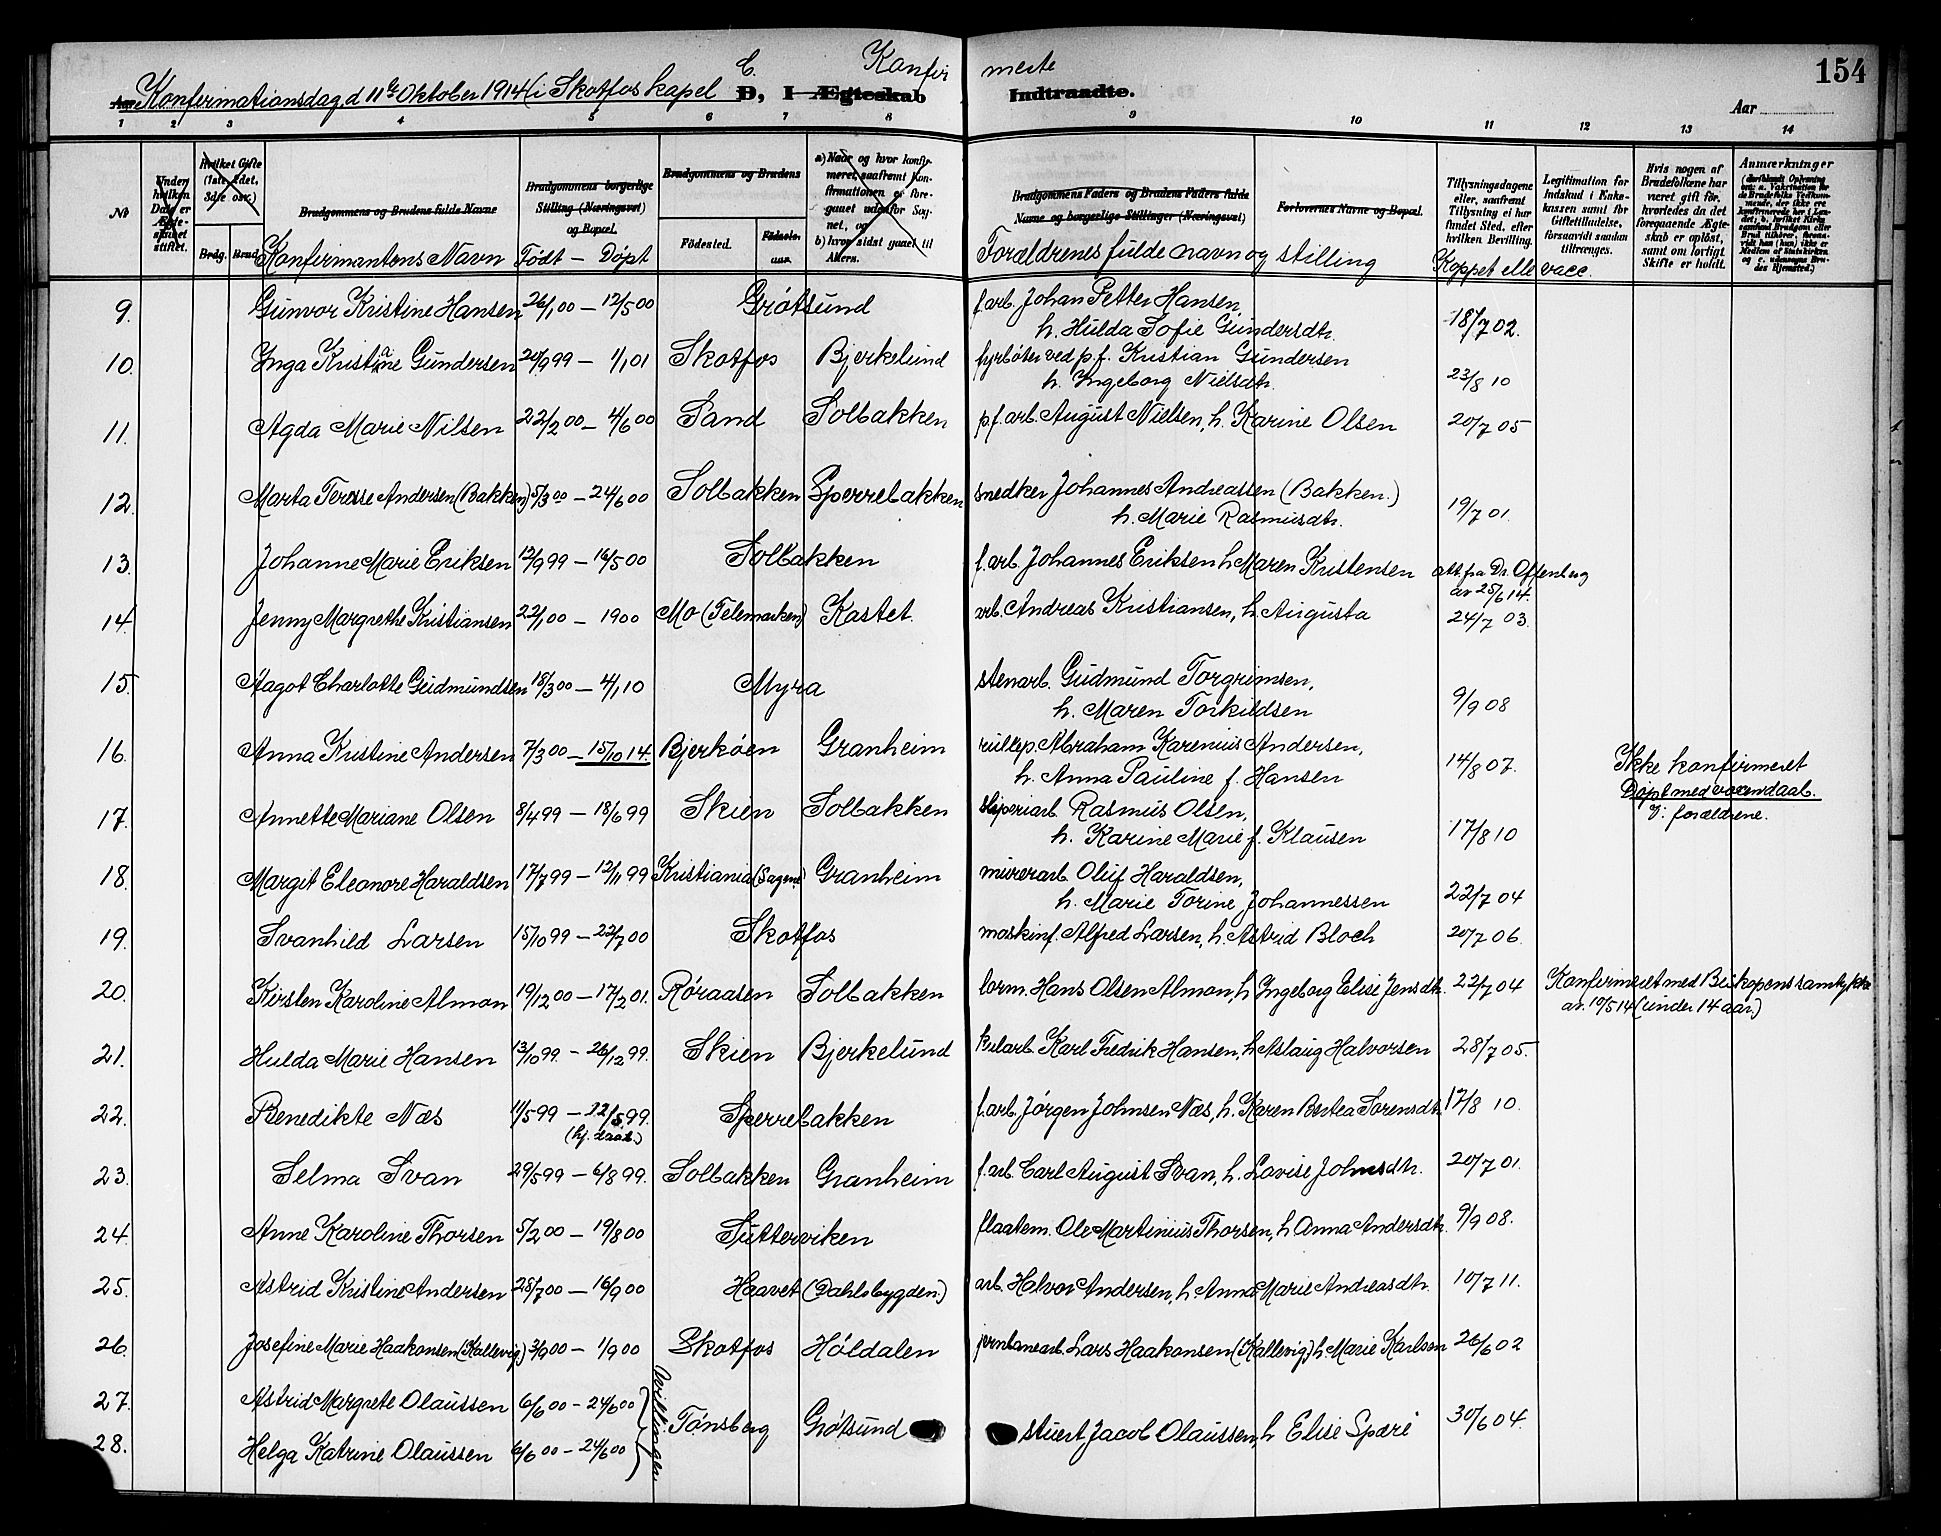 154
C. Konfirmerte
Aar Konfirmationsdag d 11te Oktober 1914 i Skotfos kapel D, I Ægteskab Indtraadte. Aar
1 2 3 4 5 6 7 8 9 10 11 12 13 14
No
Under hvilken Dato er Ægteskabet stiftet.
Hvilket Gifte (1ste, 2det, 3die osv.)
Brdg. Brud
Brudgommens og Brudens fulde Navne
Konfirmantens Navn
Brudgommens borgerlige Stilling (Næringsvei) og Bopæl.
Født — Døpt
Brudgommens og Brudens
Fødested. Fødselsaar.
a) Naar og hvor konfirmeret, saafremt Konfirmationen er foregaaet udenfor Sognet, og
b) hvor sidst gaaet til Alters.
Brudgommens Faders og Brudens Faders fulde Navne og borgerlige Stillinger (Næringsvei)
Forældrenes fulde navn og stilling
Forlovernes Navne og Bopæl.
Tillysningsdagene eller, saafremt Tillysning ei har fundet Sted, efter hvilken Bevilling.
Koppet elle vacc.
Legitimation for Indskud i Enkekassen samt for Giftettilladelse, forsaavidt saadan tiltrænges.
Hvis nogen af Brudefolkene har været gift før, hvorledes da det foregaaende Ægteskab er opløst, samt om lovligt Skifte er holdt.
Anmærkninger
9. Gunvor Kristine Hansen 26/1 00 — 12/5 00 Grøtsund f.arb. Johan Petter Hansen,
h. Hulda Sofie Gundersdtr. 18/7 02.
10. Inga Kristiane Gundersen 20/9 99 — 1/1 01 Skotfos Bjerkelund fyrbøter ved p.f. Kristian Gundersen
h. Ingeborg Nielsdtr. 23/8 10
11. Agda Marie Nilsen 22/2 00 — 4/6 00 Sand Solbakken p.f. arb. August Nielsen, h. Karine Olsen 20/7 05
12. Marta Terese Andersen (Bakken) 5/3 00 — 24/6 00 Solbakken Sperrebakken snedker Johannes Andreassen (Bakken.)
h. Marie Rasmusdtr. 19/7 01.
13. Johanne Marie Eriksen 12/9 99 — 16/5 00 Solbakken f.arb. Johannes Eriksen h. Maren Kristensen att. fra Dr. Offenberg
av 25/6 14.
14. Jenny Margrethe Kristiansen 22/1 00 — 1900 Mo (Telemarken) Kastet. arb. Andreas Kristiansen, h. Augusta 24/7 03.
15. Aagot Charlotte Gudmundsen 18/3 00 — 4/1 10 Myra stenarb. Gudmund Torgrimsen,
h. Maren Torkildsen 9/9 08
16. Anna Kristine Andersen 7/3 00 — 15/10 14. Bjerkøen Granheim rullep. Abraham Karenius Andersen,
h. Anna Pauline f. Hansen 14/8 07. Ikke konfirmeret
Døpt med voxendaab.
V: forældrene.
17. Annette Mariane Olsen 8/4 99 — 18/6 99 Skien Solbakken sliperiarb. Rasmus Olsen,
h. Karine Marie f. Klausen 17/8 10
18. Margit Eleonore Haraldsen 17/7 99 — 12/11 99 Kristiania (Sagene) Granheim murerarb. Oluf Haraldsen,
h. Marie Torine Johannessen 22/7 04
19. Svanhild Larsen 15/10 99 — 22/7 00 Skotfos maskinf. Alfred Larsen, h. Astrid Bloch 20/7 06.
20. Kirsten Karoline Almon 19/12 00 — 17/2 01. Røraasen Solbakken form. Hans Olsen Almon, h. Ingeborg Elise Jensdtr. 22/7 04 Konfirmeret med Biskopens samtykke
av. 10/5 14 (under 14 aar.)
21. Hulda Marie Hansen 13/10 99. — 26/12 99. Skien Bjerkelund Karl Fredrik Hansen, h. Aslaug Halvorsen 28/7 05.
22. Benedikte Næs 11/5 99 — 22/5 99. Sperrebakken f.arb. Jørgen Johnsen Næs, h. Karen Bertea Sørensdtr. 17/8 10.
(hj. daab.)
23. Selma Svan 29/5 99 — 6/8 99. Solbakken Granheim f.arb. Carl August Svan, h. Lovise Johnsdtr. 20/7 01.
24. Anne Karoline Thorsen 5/2 00 — 19/8 00 Sutterviken flaatem. Ole Martinius Thorsen, h. Anna Andersdtr. 9/9 08.
25. Astrid Kristine Andersen 28/7 00 — 16/9 00 Haavet (Dahlsbygden.) arb. Halvor Andersen, h. Anna Marie Andreasdtr. 10/7 11.
26. Josefine Marie Haakonsen (Kallevig) 3/9 00 — 1/9 00 Skotfos Høldalen jernbanearb. Lars Haakonsen (Kallevig) h. Marie Karlsen 26/6 02
27. Astrid Margrete Olaussen 6/6 00 — 24/6 00 tvillinger Tønsberg Grøtsund stuert Jacob Olaussen, h Elise Sparé 30/6 04.
28. Helga Katrine Olaussen 6/6 00 — 24/6 00